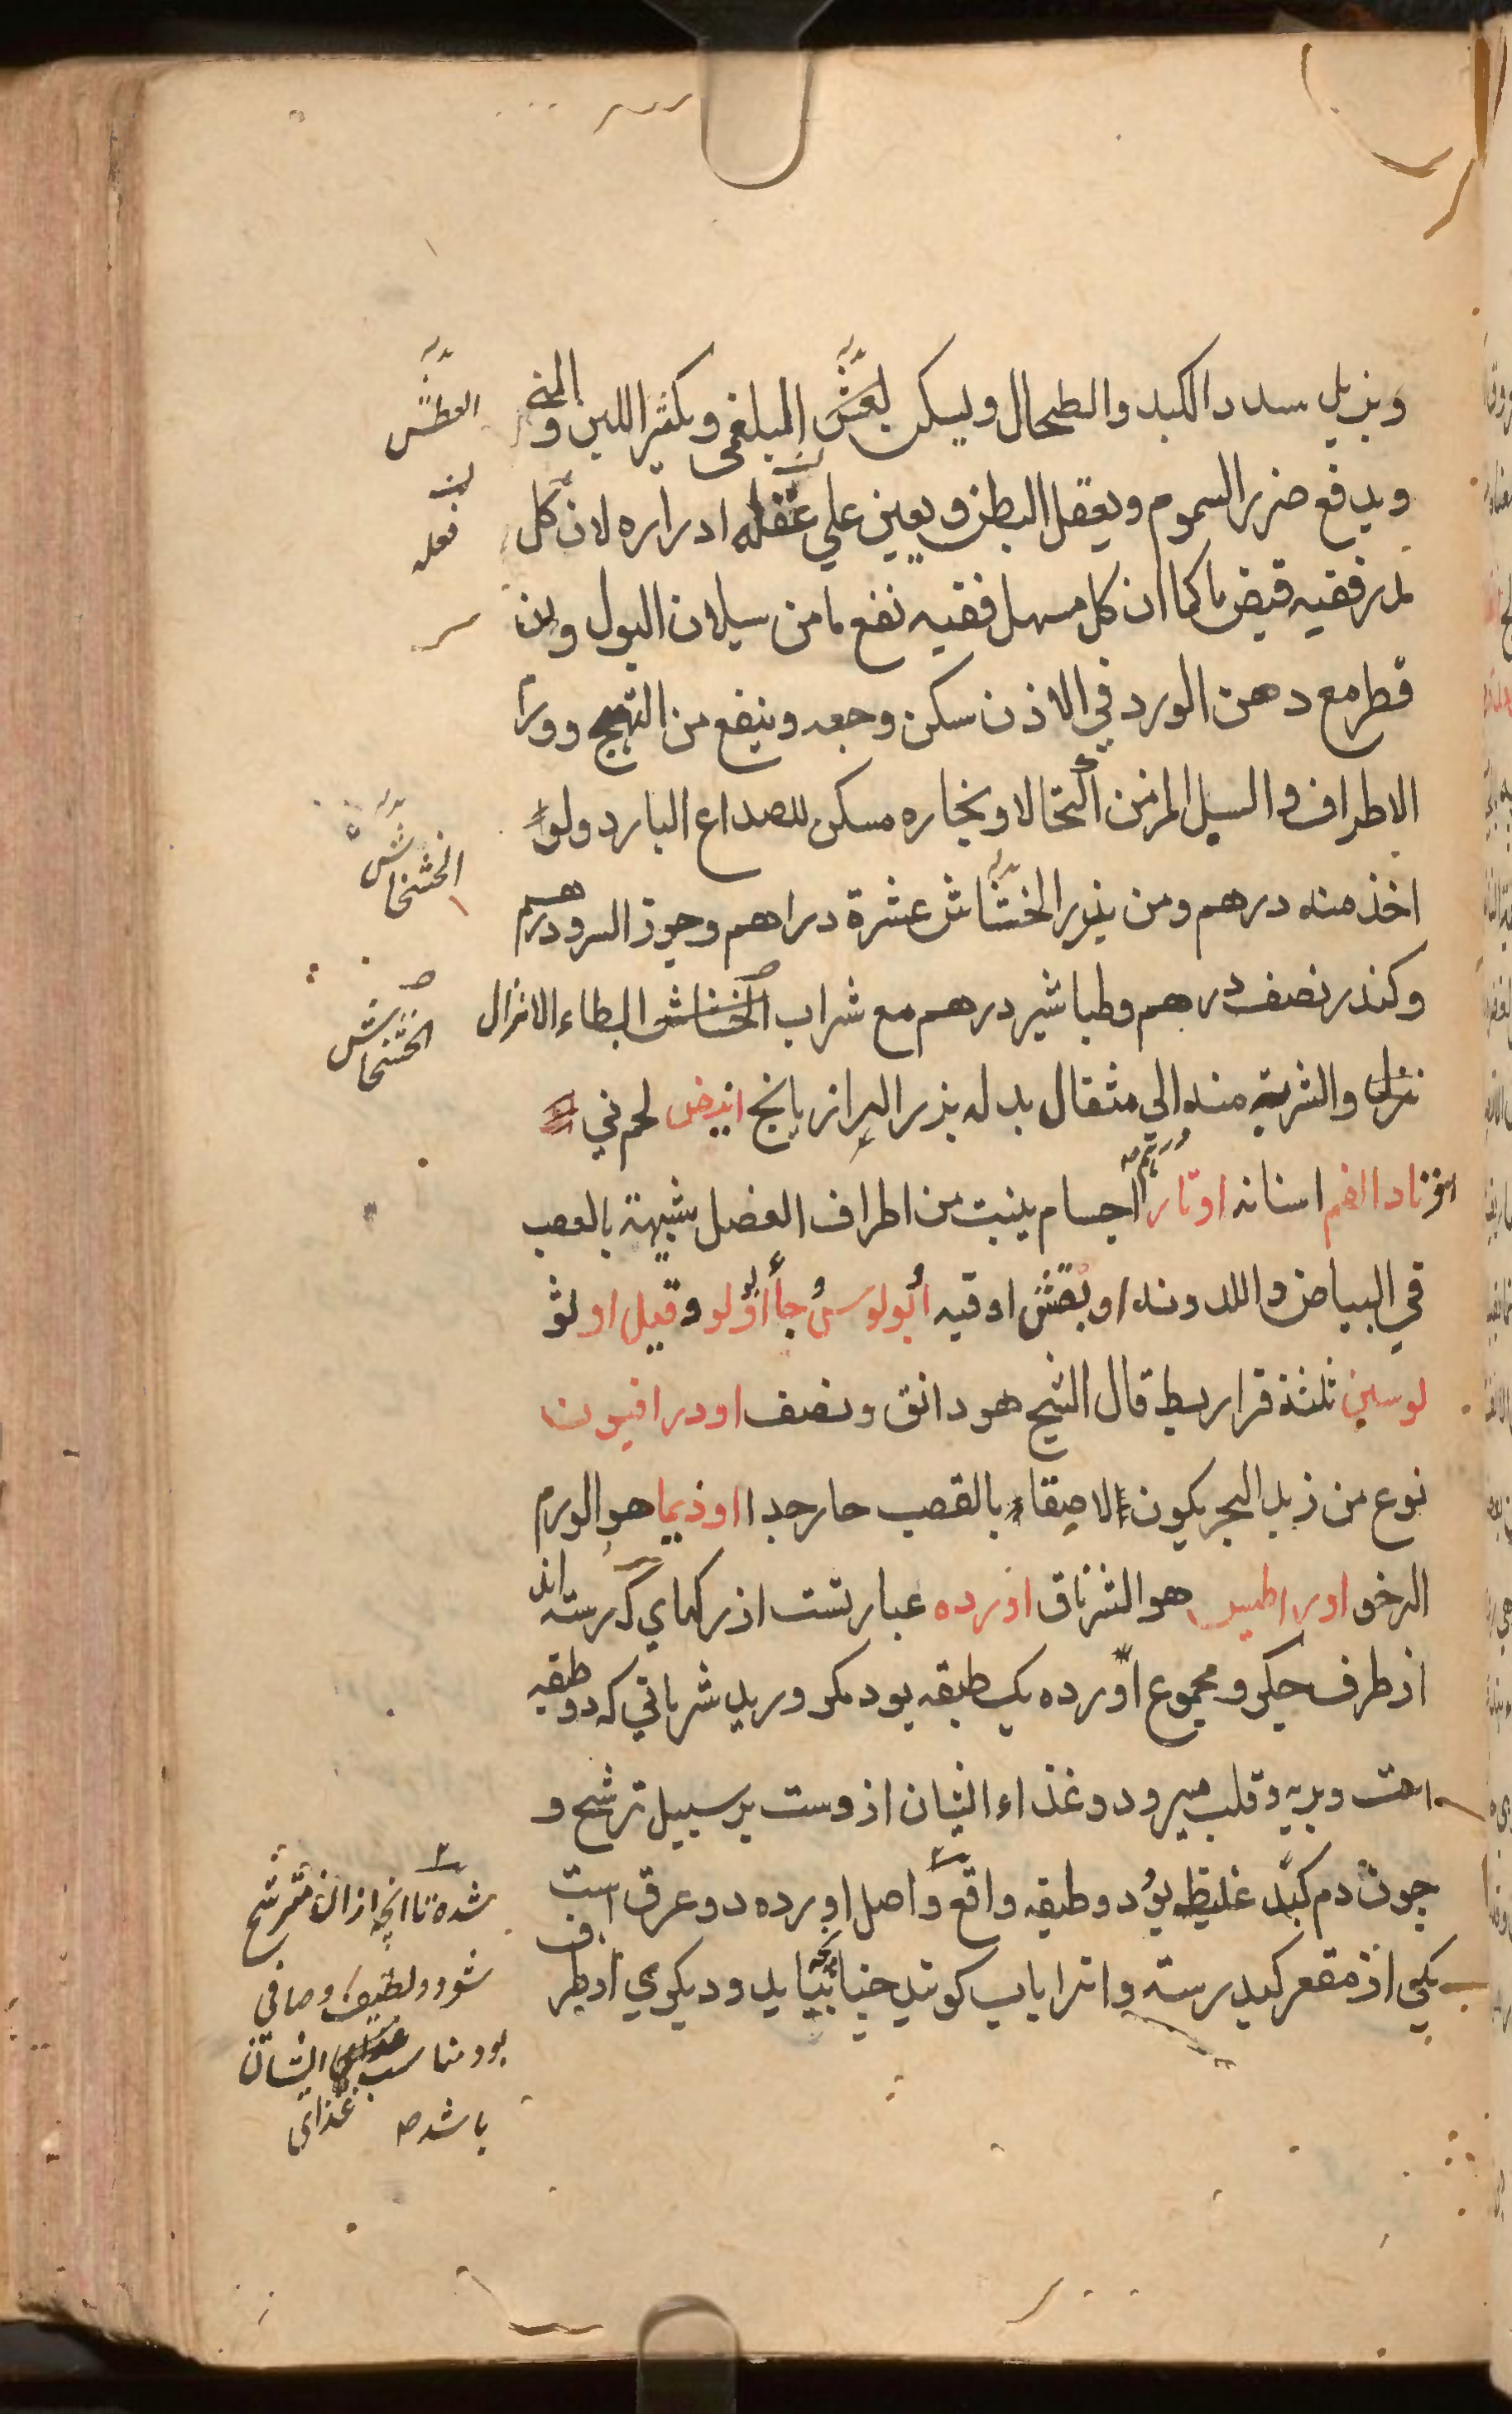 ویزیل سدد الکبد والطحال ویسکن لعش البلغمی ویکثر اللبن والمنی
ویدفع ضرر السموم ویعقل البطن ویعین علی عقله ادراره لان کل
مدر ففیه قبض ما کما ان کل مسهل ففیه نفع ما من سیلان البول وان
قطر مع دهن الورد فی الاذن سکن وجعه وینفع من التهیج وورم
الاطراف والسبل المزمن اکتحالا وبخاره مسکن للصداع البارد ولو
اخذ منه درهم ومن بزر الخشاش عشرة دراهم وجوز السرو درهم
وکندر نصف درهم وطباشیر درهم مع شراب الخشاش ابطاء الانزال
والشربة منه الی مثقال بدله بزر الرازیانج اندخس لحم نی
اوتاد الفم اسنانه اوتار اجسام ینبت من اطراف العضل شبیهة بالعصب
فی البیاض واللدونه اوقیه ابولوس جا اولو وقیل اولو
لوسین ثلثة قراریط قال الشیخ هو دانق ونصف اودرافیون
نوع من زبد البحر یکون لاصقا بالقصب حار جدا اوذیما هو الورم
الرخو اوراطیس هو الشرناق اورده عبارتست از رکهای که رسته اند
از طرف جکر ومجموع اورده یک طبقه بود مکر ورید شریانی که دو طبقه
است وبریه وقلب میرود وغذاء ایشان ازوست بر سبیل ترشح و
چون دم کبد غلیظ بود دو طبقه واقع واصل اورده دو عرق است
یکی از مقعر کبد رسته وانرا باب کویند چنانچه بیاید ودیکری از طرف
العطش
فعله
الخشخاش
الخشخاش
شده تا انچه ازان مترشح
شود ولطیف وصافی
بود مناسب غذای ایشان
باشد